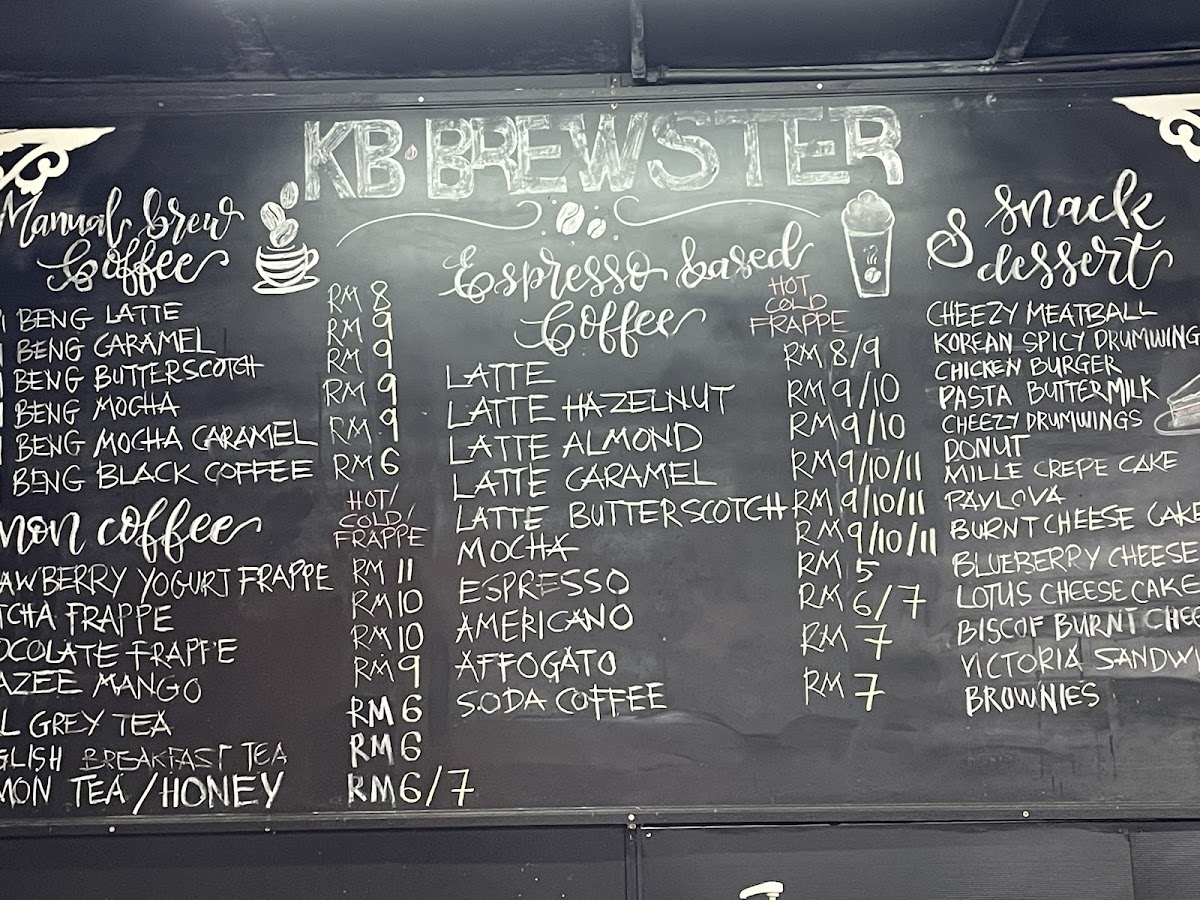 KB·BREWSTER
Manual brew
Coffee
BENG LATTE RM 8
BENG CARAMEL RM 9
BENG BUTTERSCOTCH RM 9
BENG MOCHA RM 9
BENG MOCHA CARAMEL RM 9
BENG BLACK COFFEE RM 6
non coffee
HOT/
COLD/
FRAPPE
YOGURT FRAPPE RM 11
FRAPPE RM 10
FRAPPE RM 10
MANGO RM 9
GREY TEA RM 6
BREAKFAST TEA RM 6
TEA/HONEY RM 6/7
Espresso based
Coffee
HOT
COLD
FRAPPE
LATTE RM 8/9
LATTE HAZELNUT RM 9/10
LATTE ALMOND RM 9/10
LATTE CARAMEL RM 9/10/11
LATTE BUTTERSCOTCH RM 9/10/11
MOCHA RM 9/10/11
ESPRESSO RM 5
AMERICANO RM 6/7
AFFOGATO RM 7
SODA COFFEE RM 7
snack
dessert
CHEEZY MEATBALL
KOREAN SPICY DRUMWING
CHICKEN BURGER
PASTA BUTTERMILK
CHEEZY DRUMWINGS
DONUT
MILLE CREPE CAKE
PAVLOVA
BURNT CHEESE CAKE
BLUEBERRY CHEESE
LOTUS CHEESE CAKE
BISCOF BURNT
VICTORIA
BROWNIES